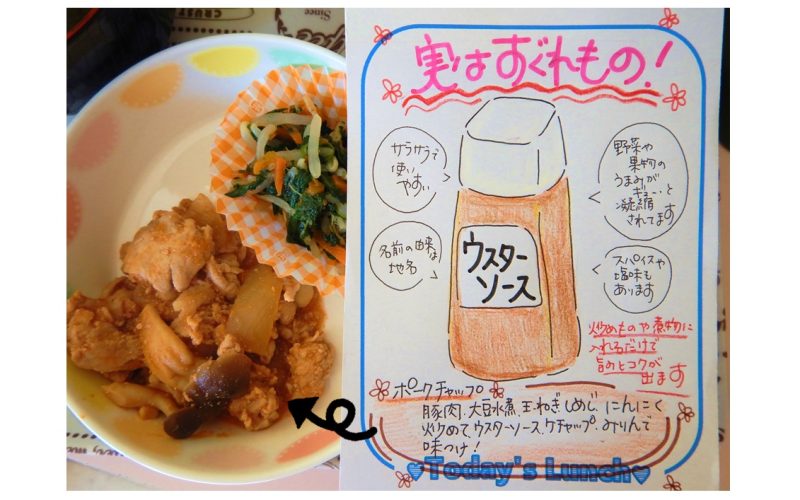 Since
CRUST
実はすぐれもの!
サラサラで
使い
やすい
野菜や
果物の
うまみが
ギューッと
凝縮
されてます
名前の由来は
地名
ウスター
ソース
スパイスや
塩味も
あります
炒めものや煮物に
入れるだけで
旨みとコクが
出ます
ポークチャップ
豚肉、大豆水煮、玉ねぎ、しめじ、にんにく
炒めて、ウスターソース、ケチャップ、みりんで
味つけ!
Today's Lunch